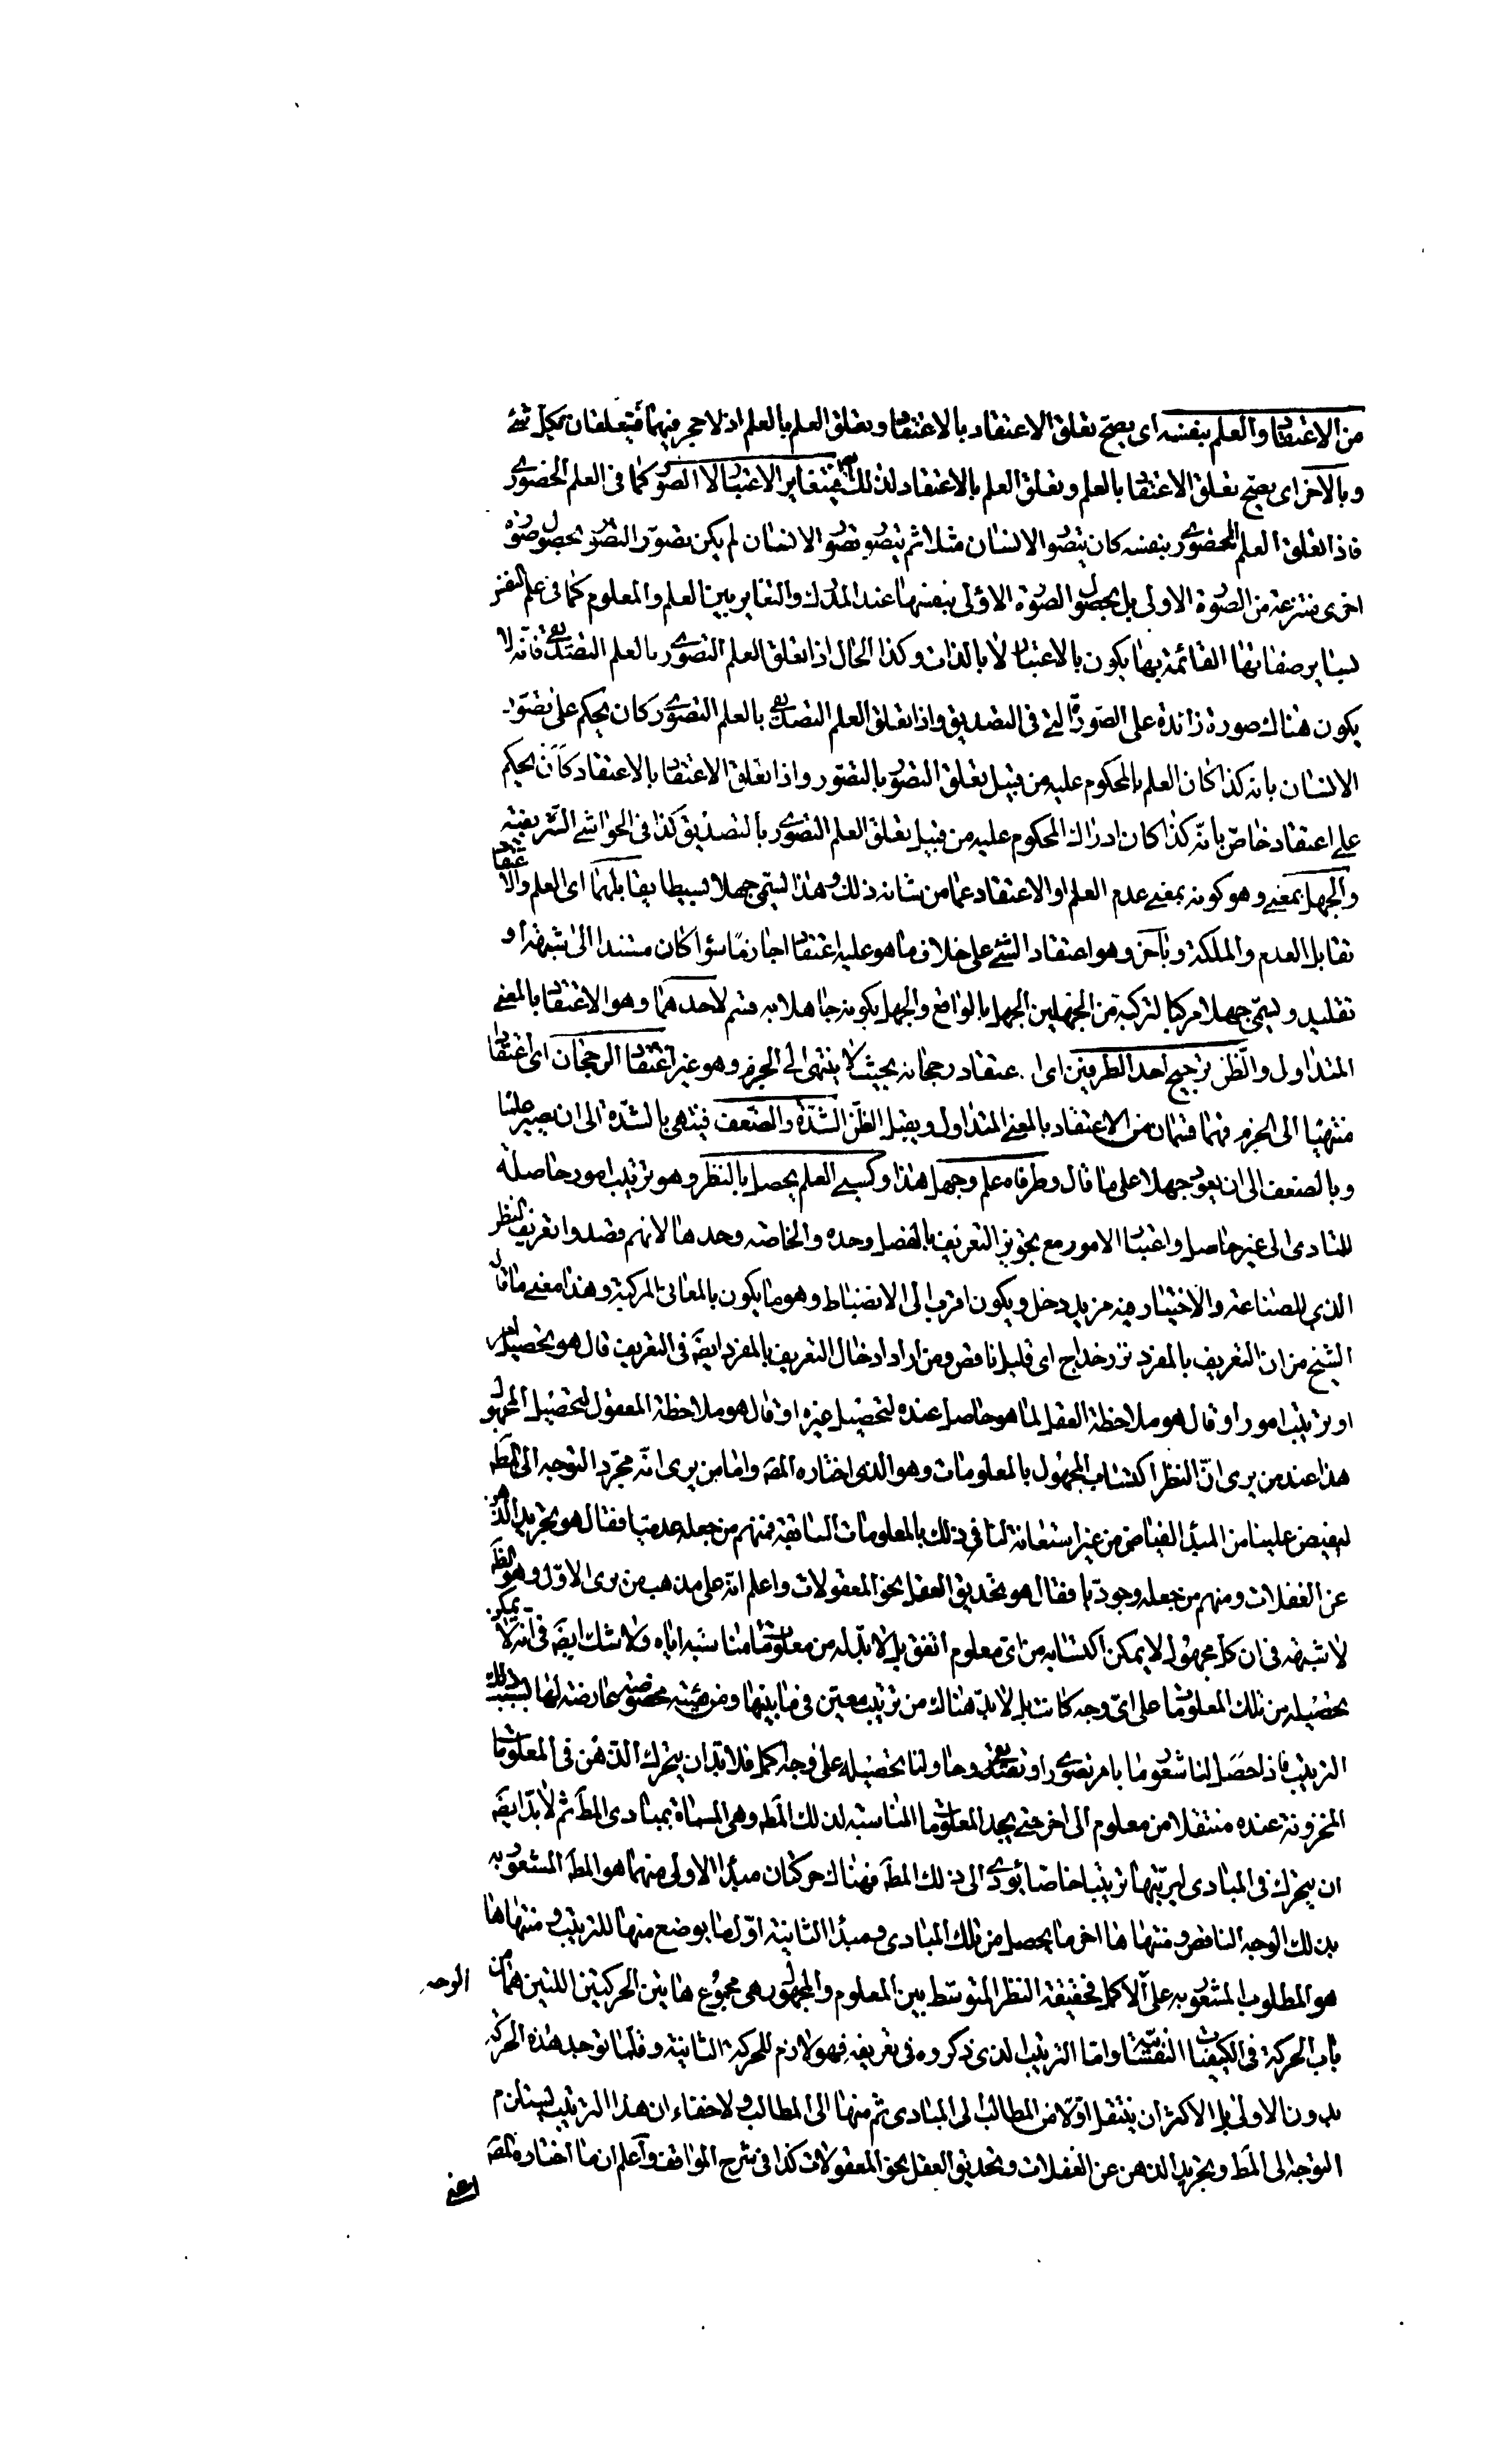 من الاعتقاد والعلم بنفسه اى يصح تعلق الاعتقاد بالاعتقاد وتعلق العلم بالعلم اذ لا حجر فيهما فيتعلقان بكل شئ
وبالآخر اى يصح تعلق الاعتقاد بالعلم وتعلق العلم بالاعتقاد لذلك فيتغاير الاعتبار لا الصور كما فى العلم الحضورى
فاذا تعلق العلم الحضورى بنفسه كان يتصور الانسان مثلا ثم يتصور تصور الانسان لم يكن تصور التصور بحصول صورة
اخرى منتزعة من الصورة الاولى بل بحصول الصورة الاولى بنفسها عند المدرك والتغاير بين العلم والمعلوم كما فى علم النفس
بسائر صفاتها القائمة بها يكون بالاعتبار لا بالذات وكذا الحال اذا تعلق العلم التصورى بالعلم التصديقى فانه لا
يكون هناك صورة زائدة على الصورة التى فى التصديق واذا تعلق العلم التصديقى بالعلم التصورى كان يحكم على تصور
الانسان بانه كذا كان العلم بالمحكوم عليه من قبيل تعلق التصور بالتصور واذا تعلق الاعتقاد بالاعتقاد كأن يحكم
على اعتقاد خاص بانه كذا كان ادراك المحكوم عليه من قبيل تعلق العلم التصورى بالتصديق كذا فى الحواشى الشريفية
والجهل بمعنى وهو كونه بمعنى عدم العلم او الاعتقاد عما من شانه ذلك وهذا يسمى جهلا بسيطا يقابلهما اى العلم والاعتقاد
تقابل العدم والملكة وبآخر وهو اعتقاد الشئ على خلاف ما هو عليه اعتقادا جازما سواء كان مستندا الى شبهة او
تقليد ويسمى جهلا مركبا لتركبه من الجهلين الجهل بالواقع والجهل بكونه جاهلا به قسم لاحدهما وهو الاعتقاد بالمعنى
المتداول والظن ترجيح احد الطرفين اى اعتقاد رجحانه بحيث لا ينتهى الى الجزم وهو غير اعتقاد الرجحان اى اعتقادا
منتهيا الى الجزم فهما قسمان من الاعتقاد بالمعنى المتداول ويقبل الظن الشدة والضعف فينتهى بالشدة الى ان يصير علما
وبالضعف الى ان يعود جهلا على ما قال وطرفاه علم وجهل هذا وكسبى العلم يحصل بالنظر وهو ترتيب امور حاصلة
للتادى الى غير حاصل واعتبار الامور مع تجويز التعريف بالفصل وحده والخاصة وحدها لانهم قصدوا تعريف النظر
الذى للصناعة والاختيار فيه مزيد دخل ويكون اقرب الى الانضباط وهو ما يكون بالمعانى المركبة وهذا معنى ما قال
الشيخ من ان التعريف بالمفرد نزر خداج اى قليل ناقص ومن اراد ادخال التعريف بالمفرد ايضا فى التعريف قال هو تحصيل امر
او ترتيب امور او قال هو ملاحظة العقل لما هو حاصل عنده لتحصيل غيره او قال هو ملاحظة المعقول لتحصيل المجهول
هذا عند من يرى ان النظر اكتساب المجهول بالمعلومات وهو الذى اختاره المصه واما من يرى انه مجرد التوجه الى المطه
ليفيض علينا من المبدء الفياض من غير استعانة لنا فى ذلك بالمعلومات السابقة فمنهم من جعله عدميا فقال هو تجريد الذهن
عن الغفلات ومنهم من جعله وجوديا فقال هو تحديق العقل نحو المعقولات واعلم انه على مذهب من يرى الاول وهو الظه
لا شبهة فى ان كل مجهول لا يمكن اكتسابه من اى معلوم اتفق بل لا بد له من معلومات مناسبة اياه ولا شك ايضه فى انه لا يمكن
تحصيله من تلك المعلومات على اى وجه كانت بل لا بد هناك من ترتيب معين فيما بينها ومن هيئة مخصوصة عارضة لها بسبب ذلك
الترتيب فاذا حصل لنا شعور ما بامر تصورى او تصديقى وحاولنا تحصيله على وجه اكمل فلا بد ان يتحرك الذهن فى المعلومات
المخزونة عنده منتقلا من معلوم الى اخر حتى يجد المعلومات المناسبة لذلك المطه وهى المسماة بمبادى المطه ثم لا بد ايضه
ان يتحرك فى المبادى ليرتبها ترتيبا خاصا يؤدى الى ذلك المطه فهناك حركتان مبدأ الاولى منهما هو المطه المشعور به
بذلك الوجه الناقص ومنتهاها اخر ما يحصل من تلك المبادى ومبدأ الثانية اول ما يوضع منها للترتيب ومنتهاها
هو المطلوب المشعور به على الاكمل فحقيقة النظر المتوسط بين المعلوم والمجهول هى مجموع هاتين الحركتين اللتين هما من
الوجه
باب الحركة فى الكيفيات النفسانية واما الترتيب الذى ذكروه فى تعريفه فهو لازم للحركة الثانية وقلما توجد هذه الحركة
بدون الاولى بل الاكثر ان ينتقل اولا من المطالب الى المبادى ثم منها الى المطالب ولا خفاء ان هذا الترتيب يستلزم
التوجه الى المطه وتجريد الذهن عن الغفلات وتحديق العقل نحو المعقولات كذا فى شرح المواقف واعلم ان ما اختاره المصه
اعنى